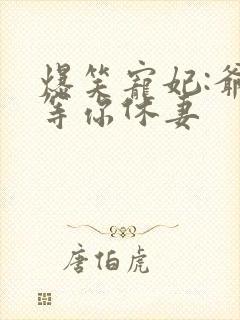 爆笑宠妃:爷
等你休妻
唐伯虎